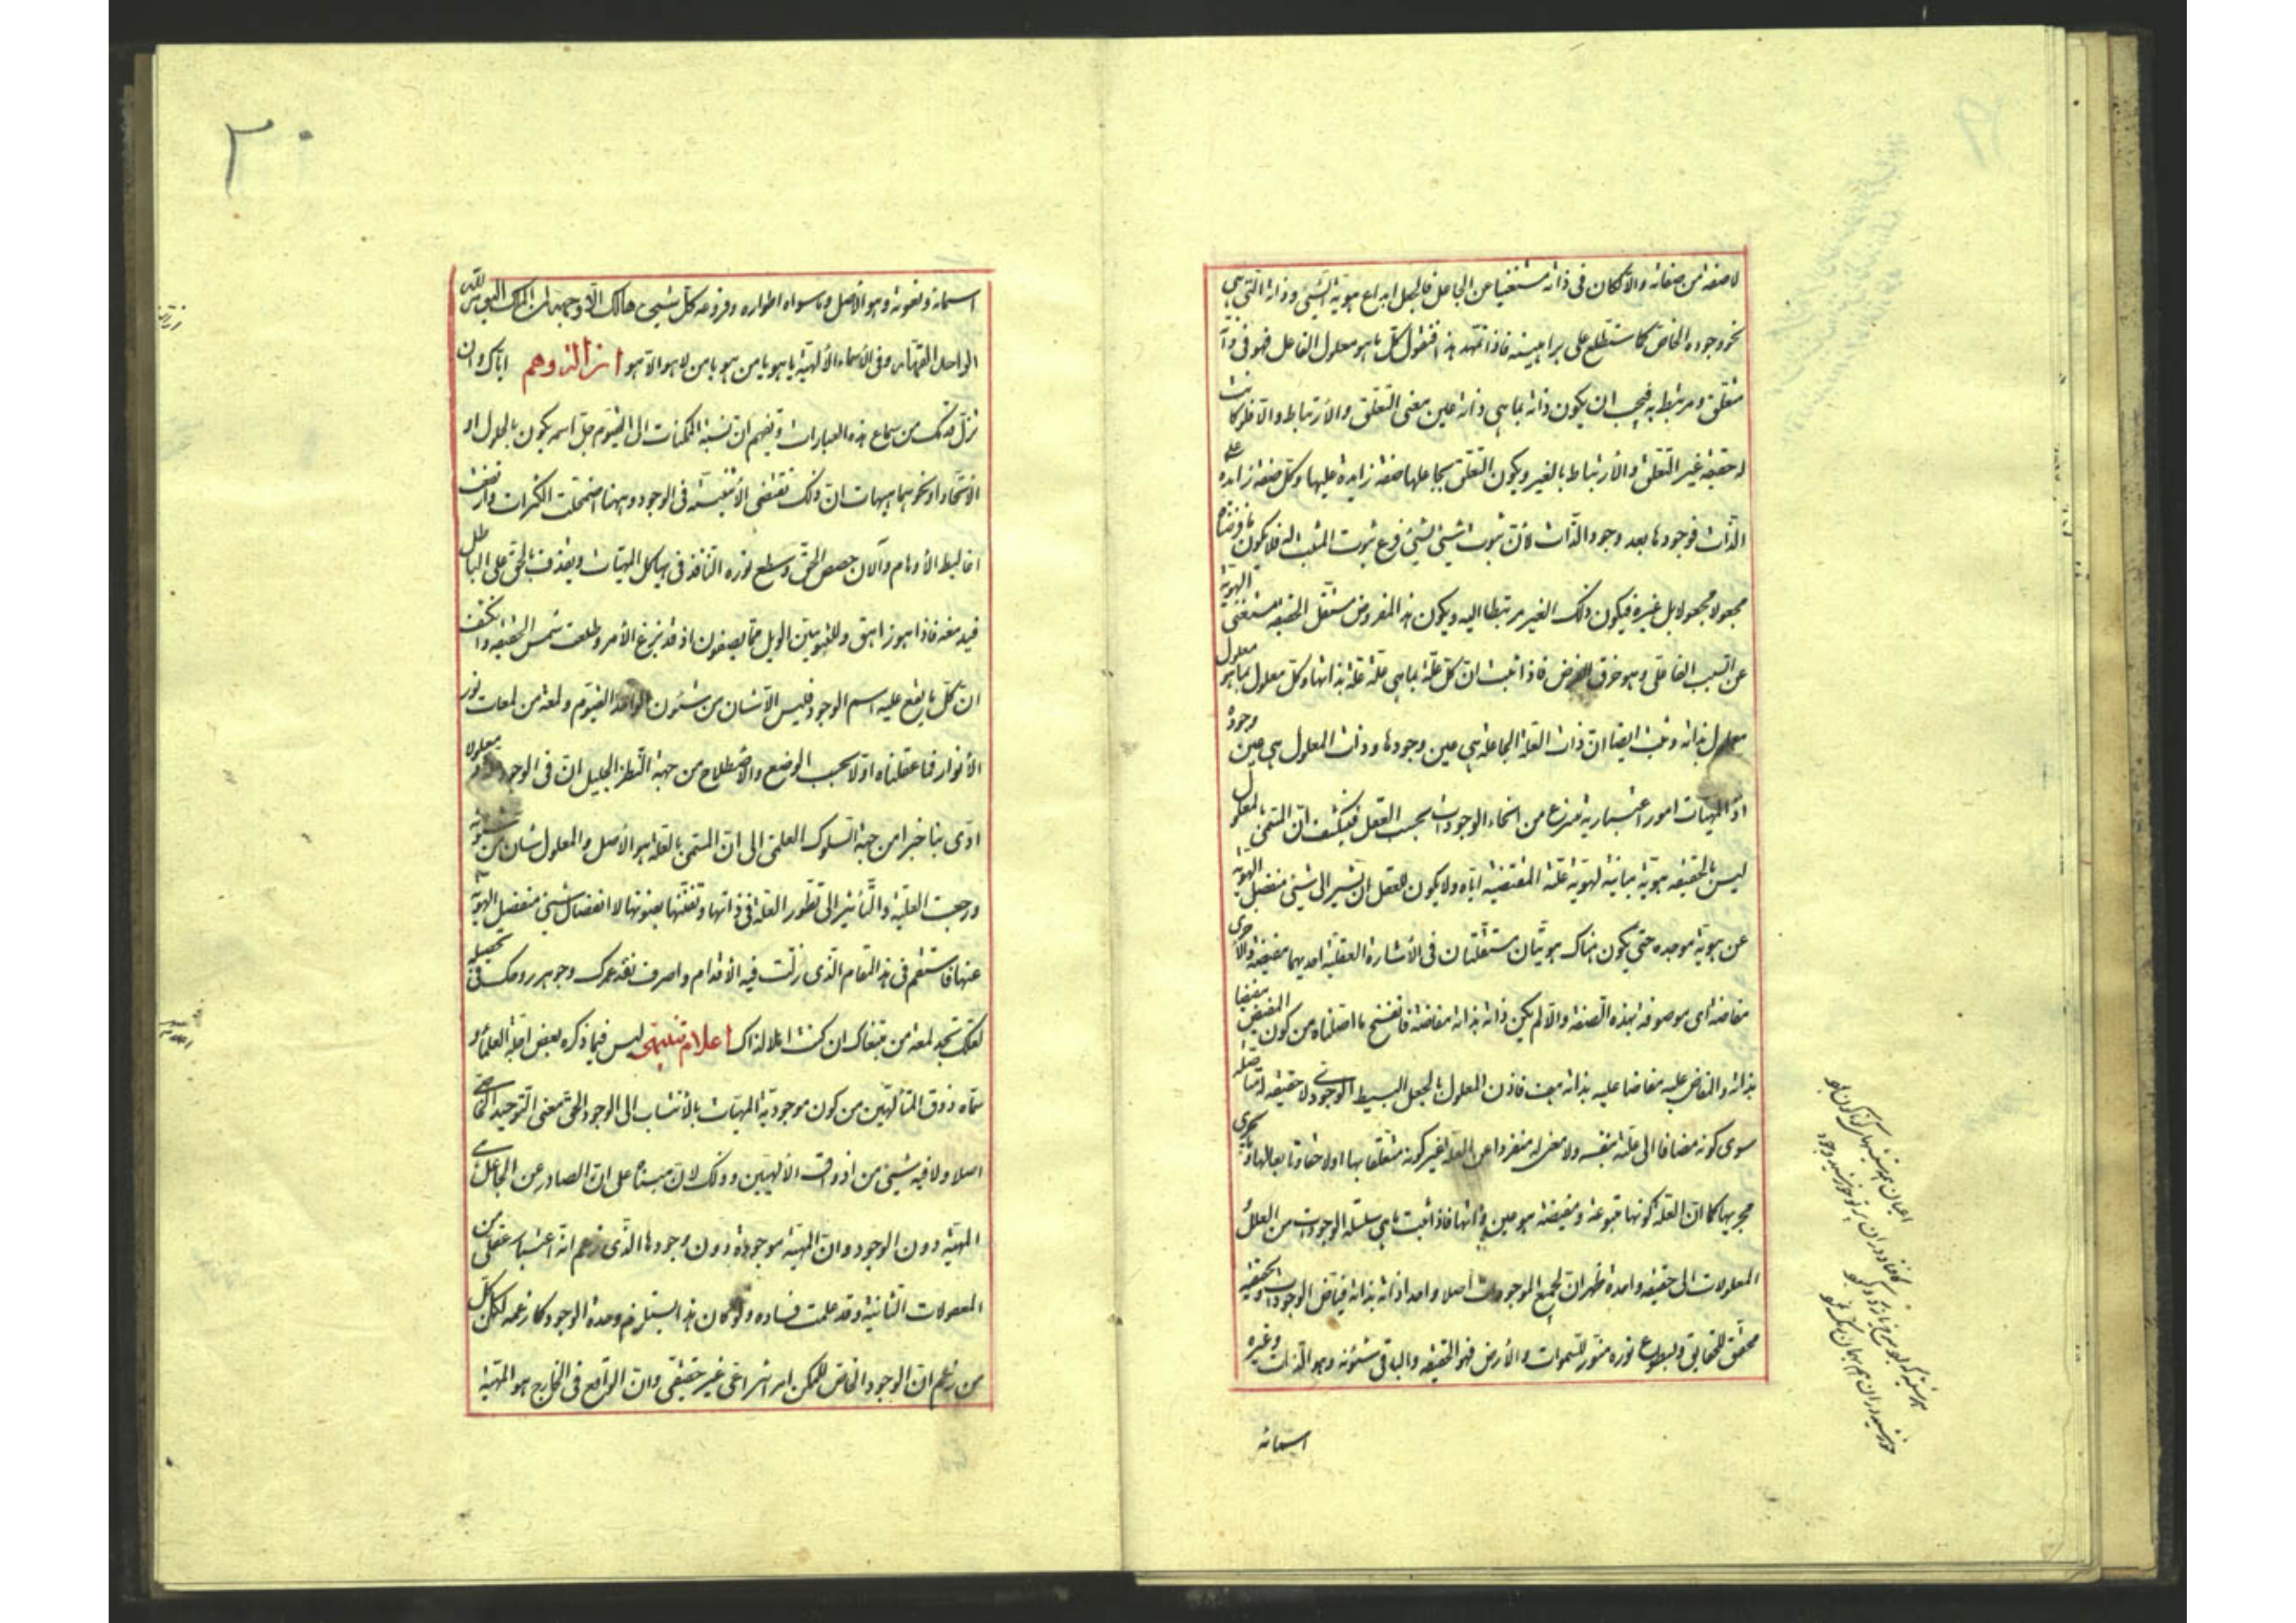 لا صفة من صفاته والا لكان فى ذاته مستغنيا عن الجاعل فالجعل ابداع هوية الشيئ وذاته التى هى
نحو وجوده الخاص كما ستطلع على براهينه فاذا تمهد هذا فنقول كل ما هو معلول الفاعل فهو فى ذاته
متعلق ومرتبط به فيجب ان يكون ذاته بما هى ذاته عين معنى التعلق والارتباط والا فلو كانت
له حقيقة غير التعلق والارتباط بالغير ويكون التعلق بجاعلها صفة زايدة عليها وكل صفة زايدة على
الذات فوجودها بعد وجود الذات لان ثبوت شيئ لشيئ فرع ثبوت المثبت له فلا يكون ما فرضناه
مجعولا مجعولا بل غيره فيكون ذلك الغير مرتبطا اليه ويكون هذا المفروض مستقل الحقيقة مستغنى الهوية
عن السبب الفاعلى وهو خرق الفرض فاذا ثبت ان كل علة بما هى علة علة بذاتها وكل معلول بما هو معلول
معلول بذاته وثبت ايضا ان ذات العلة الجاعلة هى عين وجودها وذات المعلول هى عين وجوده
اذ المهيات امور اعتبارية تنتزع من انحاء الوجودات بحسب العقل فينكشف ان المسمى بالمعلول
ليس بالحقيقة هوية مباينة لهوية علته المقتضية اياه ولا يكون للعقل ان يشير الى شيئ منفصل الهوية
عن هوية موجده حتى يكون هناك هويتان مستقلتان فى الاشارة العقلية احديهما مفيضة والاخرى
مفاضة اى موصوفة بهذه الصفة والا لم يكن ذاته بذاته مفاضة فانفسخ ما اصلناه من كون المفيض مفيضا
بذاته والمفاض عليه مفاضا عليه بذاته هف فاذن المعلول بالجعل البسيط الوجودى لا حقيقة له متأصلة
سوى كونه مضافا الى علته بنفسه ولا معنى له منفردا عن العلة غير كونه متعلقا بها اولا حقا وتابعا لها وما يجرى
مجريها كما ان العلة كونها متبوعة ومفيضة هو عين ذاتها فاذا ثبت تناهى سلسلة الوجودات من العلل و
المعلولات الى حقيقة واحدة ظهر ان لجميع الموجودات اصلا واحدا ذاته بذاته فياض الوجودات وبحقيقته
محقق للحقايق وبسطوع نوره منور للسموات والارض فهو الحقيقة والباقى شئونه وهو الذات وغيره
اسمائه
اسمائه ونعوته وهو الاصل وما سواه اطواره وفروعه كل شيئ هالك الا وجهه لمن الملك اليوم لله
الواحد القهار وفى الاسماء الالهية يا هو يا من هو يا من لا هو الا هو ازالة وهم اياك وان
تزل قدمك من سماع هذه العبارات وتفهم ان نسبة الممكنات الى القيوم جل اسمه يكون بالحلول او
الاتحاد او نحوهما هيهات ان ذلك تقتضى الاثنينية فى الوجود وههنا اضمحلت الكثرات وارتفعت
اغاليط الاوهام والآن حصحص الحق وسطع نوره النافذ فى هياكل المهيات ويقذف بالحق على الباطل
فيدمغه فاذا هو زاهق وللثنويين الويل مما يصفون اذ قد بزغ الامر وطلعت شمس الحقيقة وانكشف
ان كل ما يقع عليه اسم الوجود فليس الا شان من شئون الواحد القيوم ولمعة من لمعات نور
الانوار فما عقلناه اولا بحسب الوضع والاصطلاح من جهة النظر الجليل ان فى الوجود علة ومعلولا
ادى بنا اخيرا من جهة السلوك العلمى الى ان المسمى بالعلة هو الاصل والمعلول شان من شئونه
ورجعت العلية والتأثير الى تطور العلة فى ذاتها وتفننها بفنونها لا انفصال شيئ منفصل الهوية
عنها فاستقم فى هذا المقام الذى زلت فيه الاقدام واصرف نقد عمرك وجوهر روحك فى تحصيله
لعلك تجد لمعة من مبتغاك ان كنت اهلا لذاك اعلام تنبيهى ليس فيما ذكره بعض اجلة العلماء و
سماه ذوق المتألهين من كون موجودية المهيات بالانتساب الى الوجود الحق معنى التوحيد الخاصى
اصلا ولا فيه شيئ من اذواق الالهيين وذلك لان مبناه على ان الصادر عن الجاعل هى
المهية دون الوجود وان المهية موجودة دون وجودها الذى زعم انه اعتبار عقلى من
المعقولات الثانية وقد علمت فساده ولو كان هذا يستلزم وحدة الوجود كما زعمه لكان كل
من زعم ان الوجود الخاص للممكن امر انتزاعى غير حقيقى وان الواقع فى الخارج هو المهية